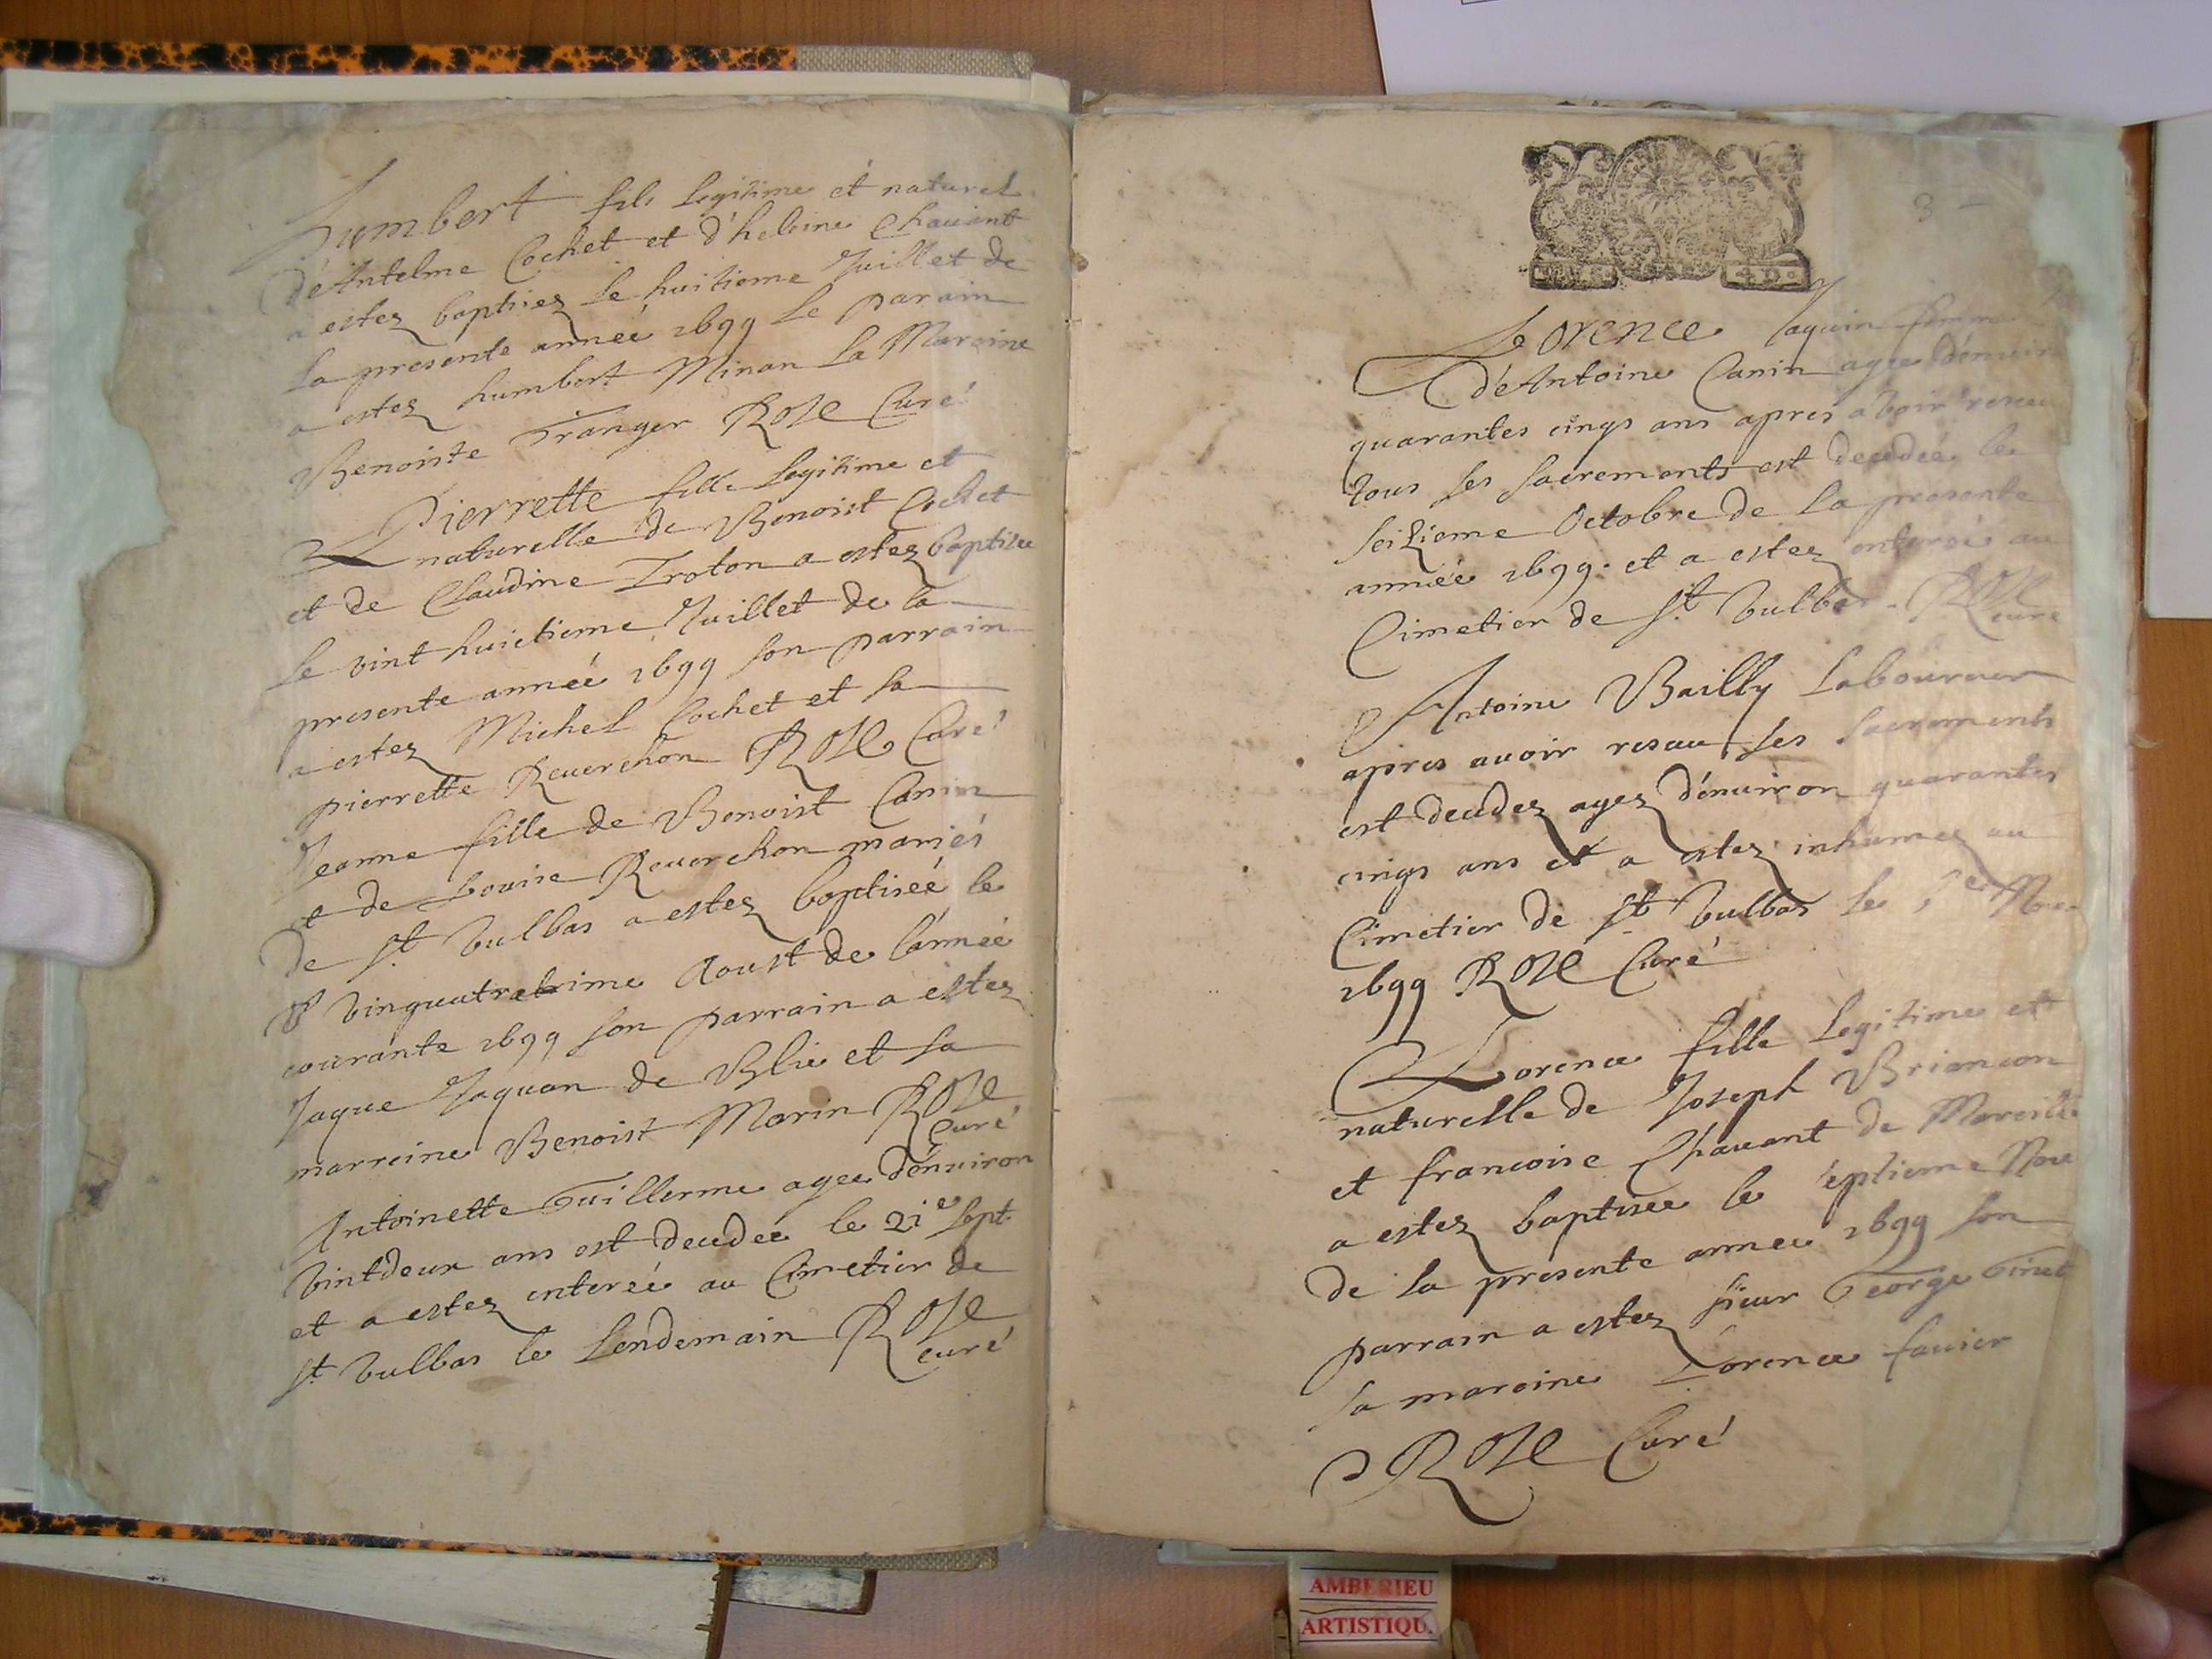 humbert fils legitime et naturel
d'Antelme Cochet et d'heleine Chauant
a estez baptiez le huitieme Juillet de
la presente année 1699 le parain
a estez humbert Minan la Mareine
Benoiste Granger ROSE Curé
Pierrette fille legitime et
naturelle de Benoist Cochet
et de Claudine Troton a estez baptisee
le vint huictieme Juillet de la
presente année 1699 son parrain
a estez Michel Cochet et sa
pierrette Reuerchon ROSE Curé
Jeanne fille de Benoist Canin
et de Louise Reuerchon mariés
de St Vulbas a estez baptiseé le
vinquatrieme Aoust de l'année
courante 1699 son parrain a estez
Jaque Jaquan de Blie et sa
marreine Benoist Marin ROSE
Curé
Antoinette Guillerme agee d'enuiron
vintdeux ans est decedeé le 21e Sept.
et a estez entereé au Cimetier de
St Vulbas le Lendemain ROSE
curé
3
Lorence Jaquin femme
d'Antoine Canin agee d'enuiron
quarantes cinqs ans apres avoir reseu
tous ses sacrements est decedeé le
seizieme Octobre de la presente
année 1699. et a estez entereé au
Cimetier de St Vulbas ROSE
curé
Antoine Bailly Laboureur
apres auoir reseu ses sacrements
est decedez agez d'enuiron quarantes
cinqs ans et a estez inhumez au
Cimetier de St Vulbas le Nou.
1699 ROSE Curé
Lorence fille Legitime et
naturelle de Joseph Briancon
et francoise Chauant de Marcilli
a estez baptisee le septieme Nou
de la presente annee 1699 son
parrain a estez sieur George Ginet
sa mareine Lorence fauier
ROSE Curé
AMBERIEU
ARTISTIQU.